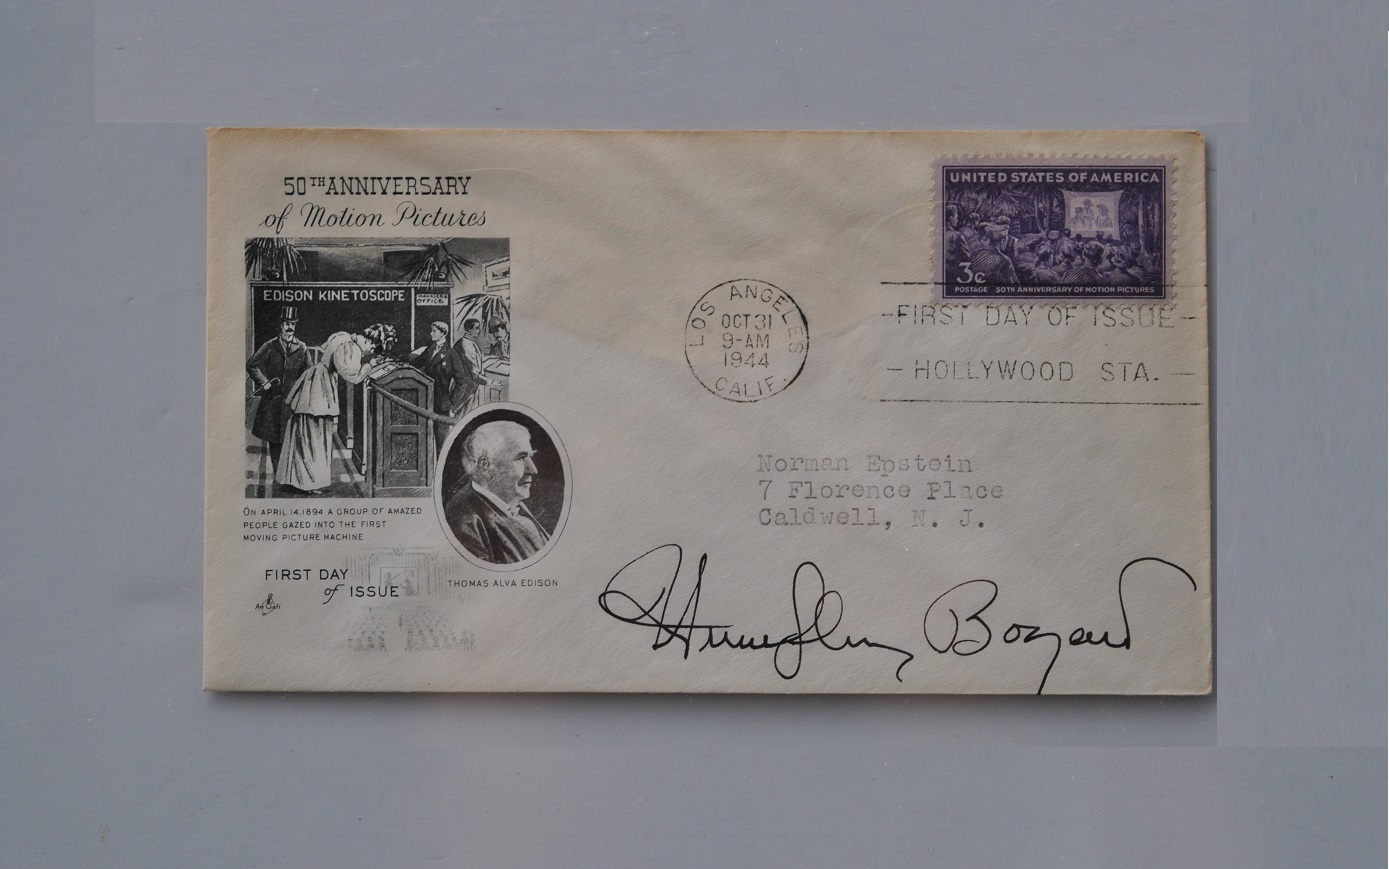 50TH ANNIVERSARY
of Motion Pictures
EDISON KINETOSCOPE
MANAGERS
OFFICE
ON APRIL 14, 1894 A GROUP OF AMAZED
PEOPLE GAZED INTO THE FIRST
MOVING PICTURE MACHINE
THOMAS ALVA EDISON
FIRST DAY
of ISSUE
Art Craft
UNITED STATES OF AMERICA
3¢
POSTAGE 50TH ANNIVERSARY OF MOTION PICTURES
LOS ANGELES
OCT 31
9-AM
1944
CALIF.
FIRST DAY OF ISSUE
HOLLYWOOD STA.
Norman Epstein
7 Florence Place
Caldwell, N. J.
Humphrey Bogart